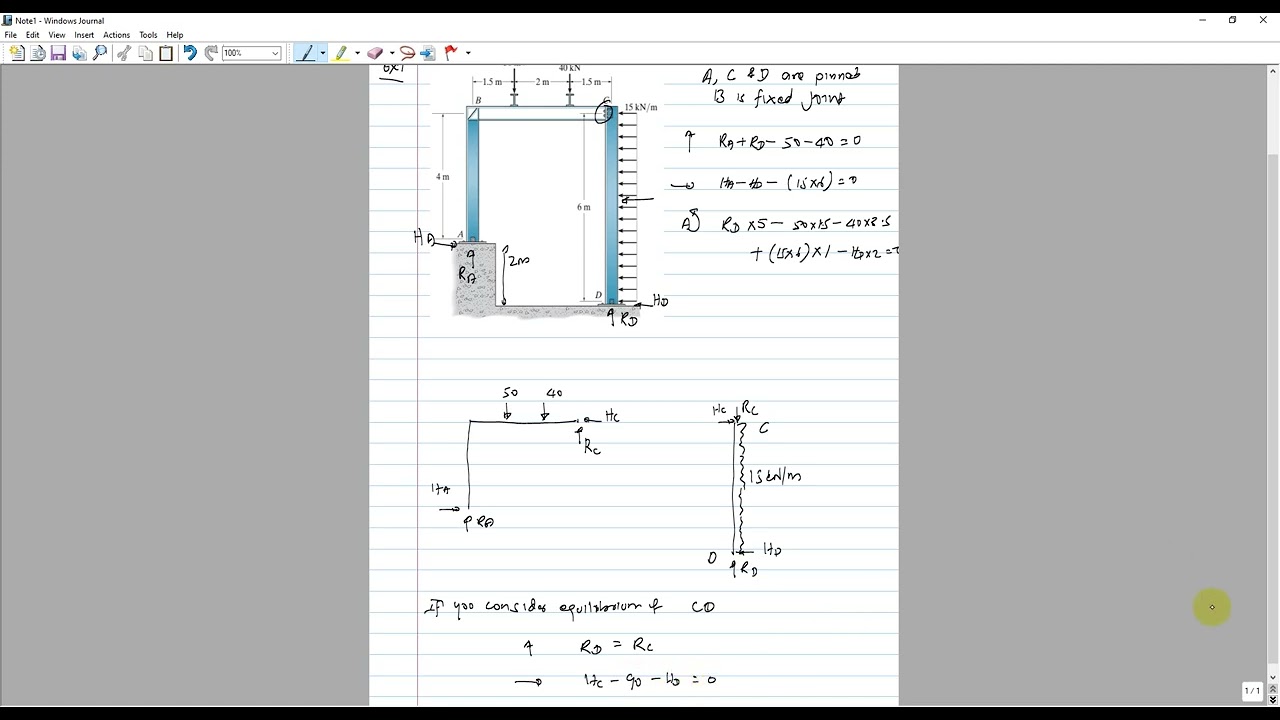 Note1 - Windows Journal
File Edit View Insert Actions Tools Help
100%
40 kN
1.5 m 2 m 1.5 m
B
15 kN/m
4 m
6 m
A
HA
RA
2m
D
HD
RD
A, C & D are pinned
B is fixed joint
↑ RA+RD- 50-40=0
→ HA-HD- (15×6)=0
A RD ×5 - 50×1.5 - 40×3.5
+ (15×6)×1 - HD×2=0
50 40
HC
RC
HA
RA
HC RC
C
15 kN/m
D
HD
RD
If you consider equilibrium of CD
↑ RD = RC
→ HC - 90 - HD = 0
1 / 1